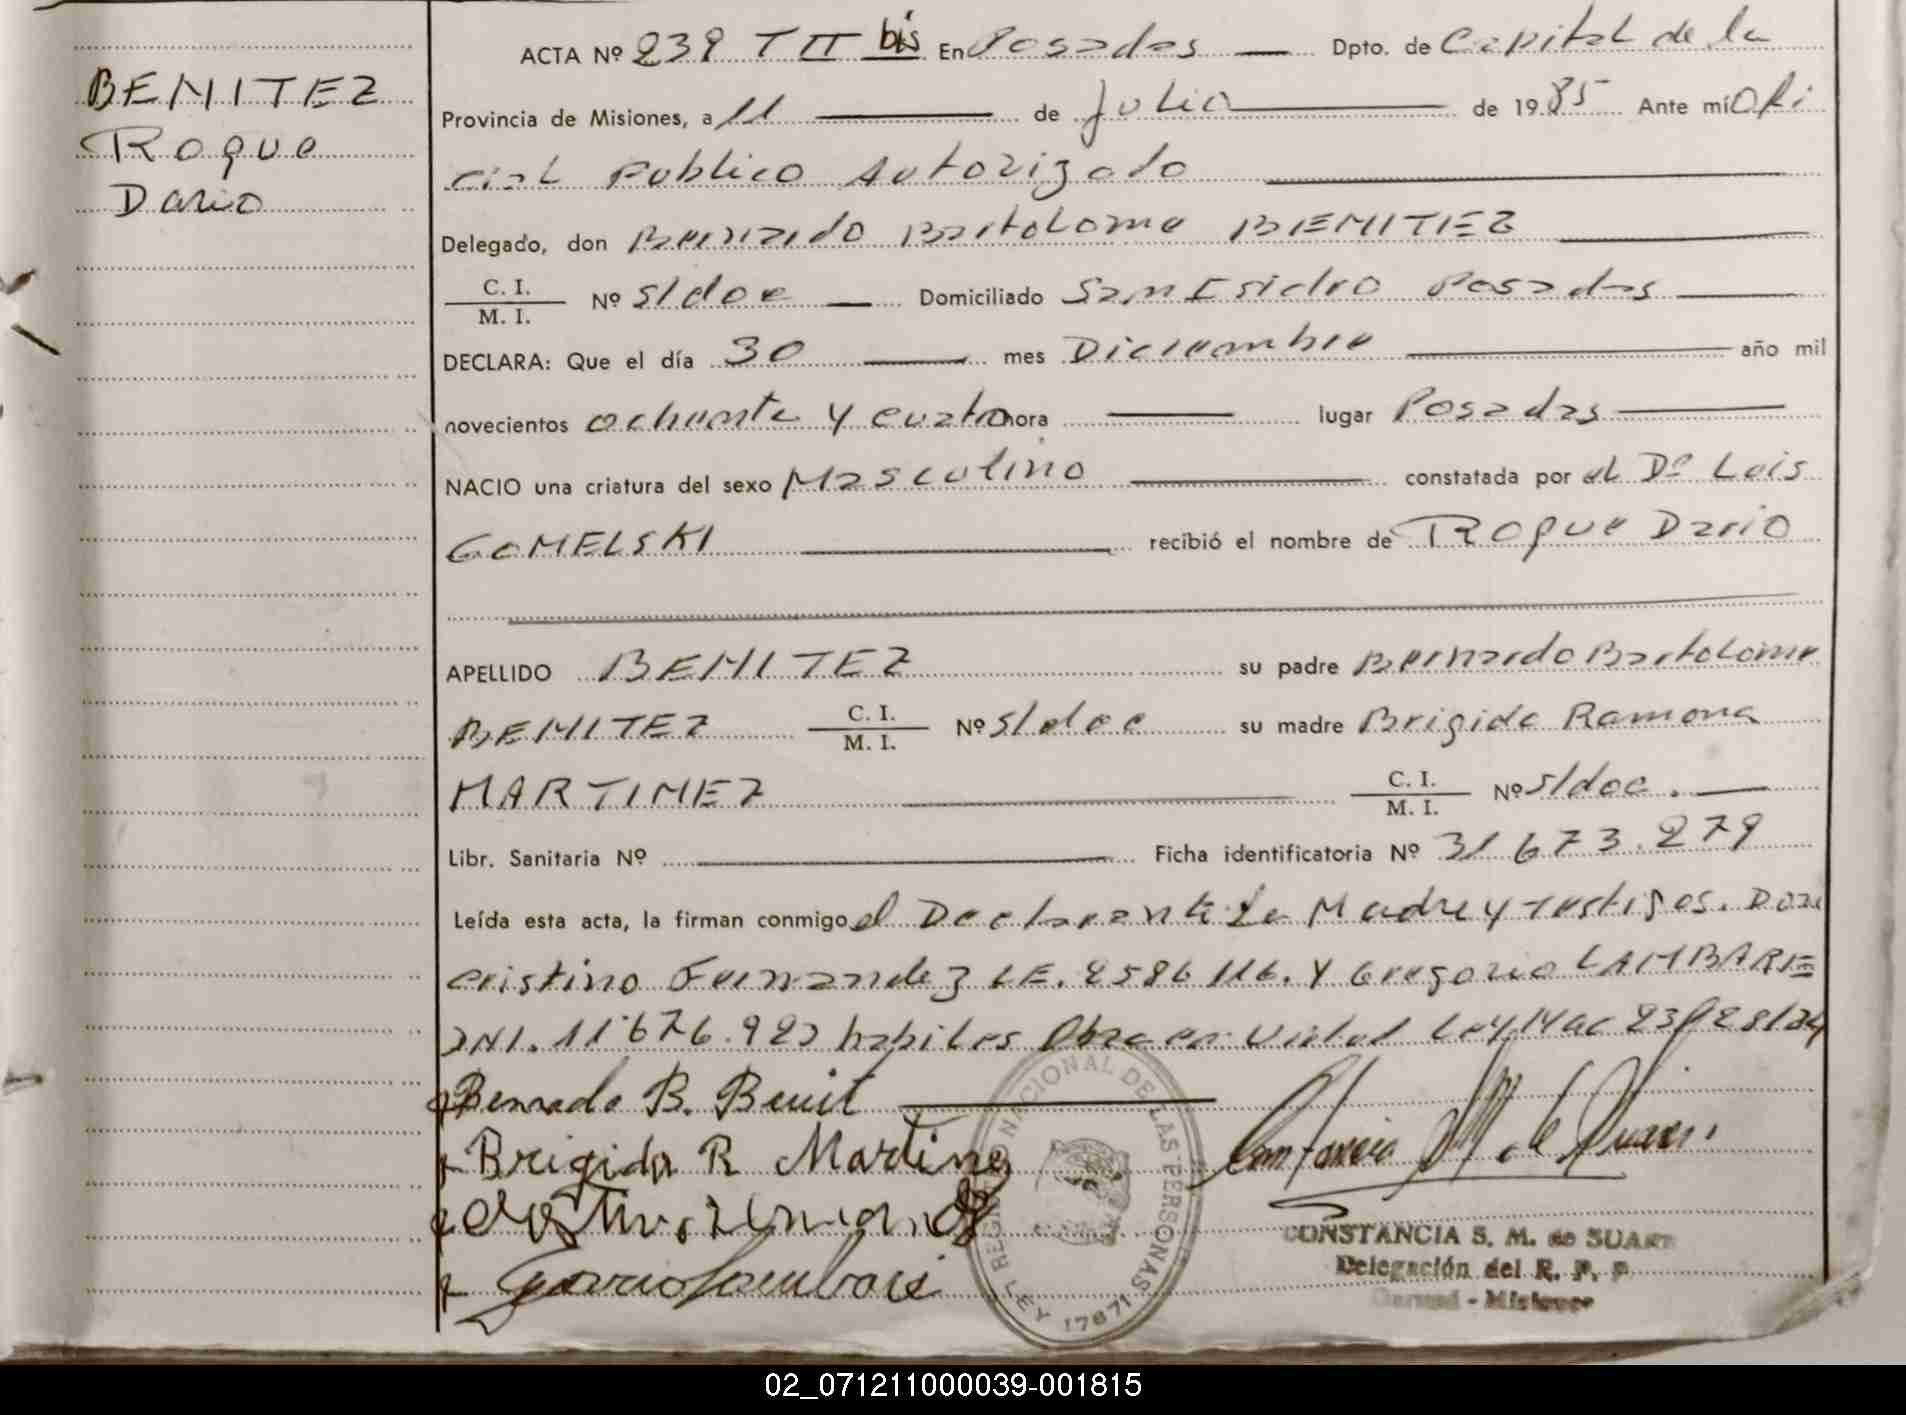 BENITEZ
Roque
Dario
ACTA Nº 239 T II bis En Posadas Dpto. de Capital de la
Provincia de Misiones, a 11 de Julio de 1985 Ante mí Ofi
cial Publico Autorizado
Delegado, don Bernardo Bartolome BENITEZ
C. I.
M. I. Nº s/doc Domiciliado San Isidro Posadas
DECLARA: Que el día 30 mes Diciembre año mil
novecientos ochenta y cuatro hora lugar Posadas
NACIO una criatura del sexo Masculino constatada por el Dº Luis
GOMELSKI recibió el nombre de Roque Dario
APELLIDO BENITEZ su padre Bernardo Bartolome
BENITEZ C. I. M. I. Nº s/doc su madre Brigida Ramona
MARTINEZ C. I. M. I. Nº s/doc.
Libr. Sanitaria Nº Ficha identificatoria Nº 31.673.279
Leída esta acta, la firman conmigo el Declarante La Madre y testigos.
Cristino Fernandez LE. Y Gregorio LAMBARE
DNI. 11.676.923 habiles
Bernardo B. Benit
Brigida R Martinez
REGISTRO NACIONAL DE LAS PERSONAS
LEY 17671
CONSTANCIA S. M. de SUAREZ
Delegación del R. P. P.
- Misiones
02_071211000039-001815